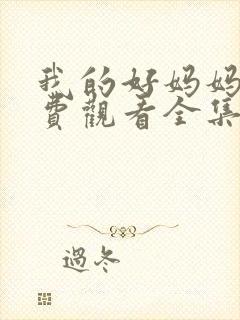 我的好妈妈
费觀看全集
過冬